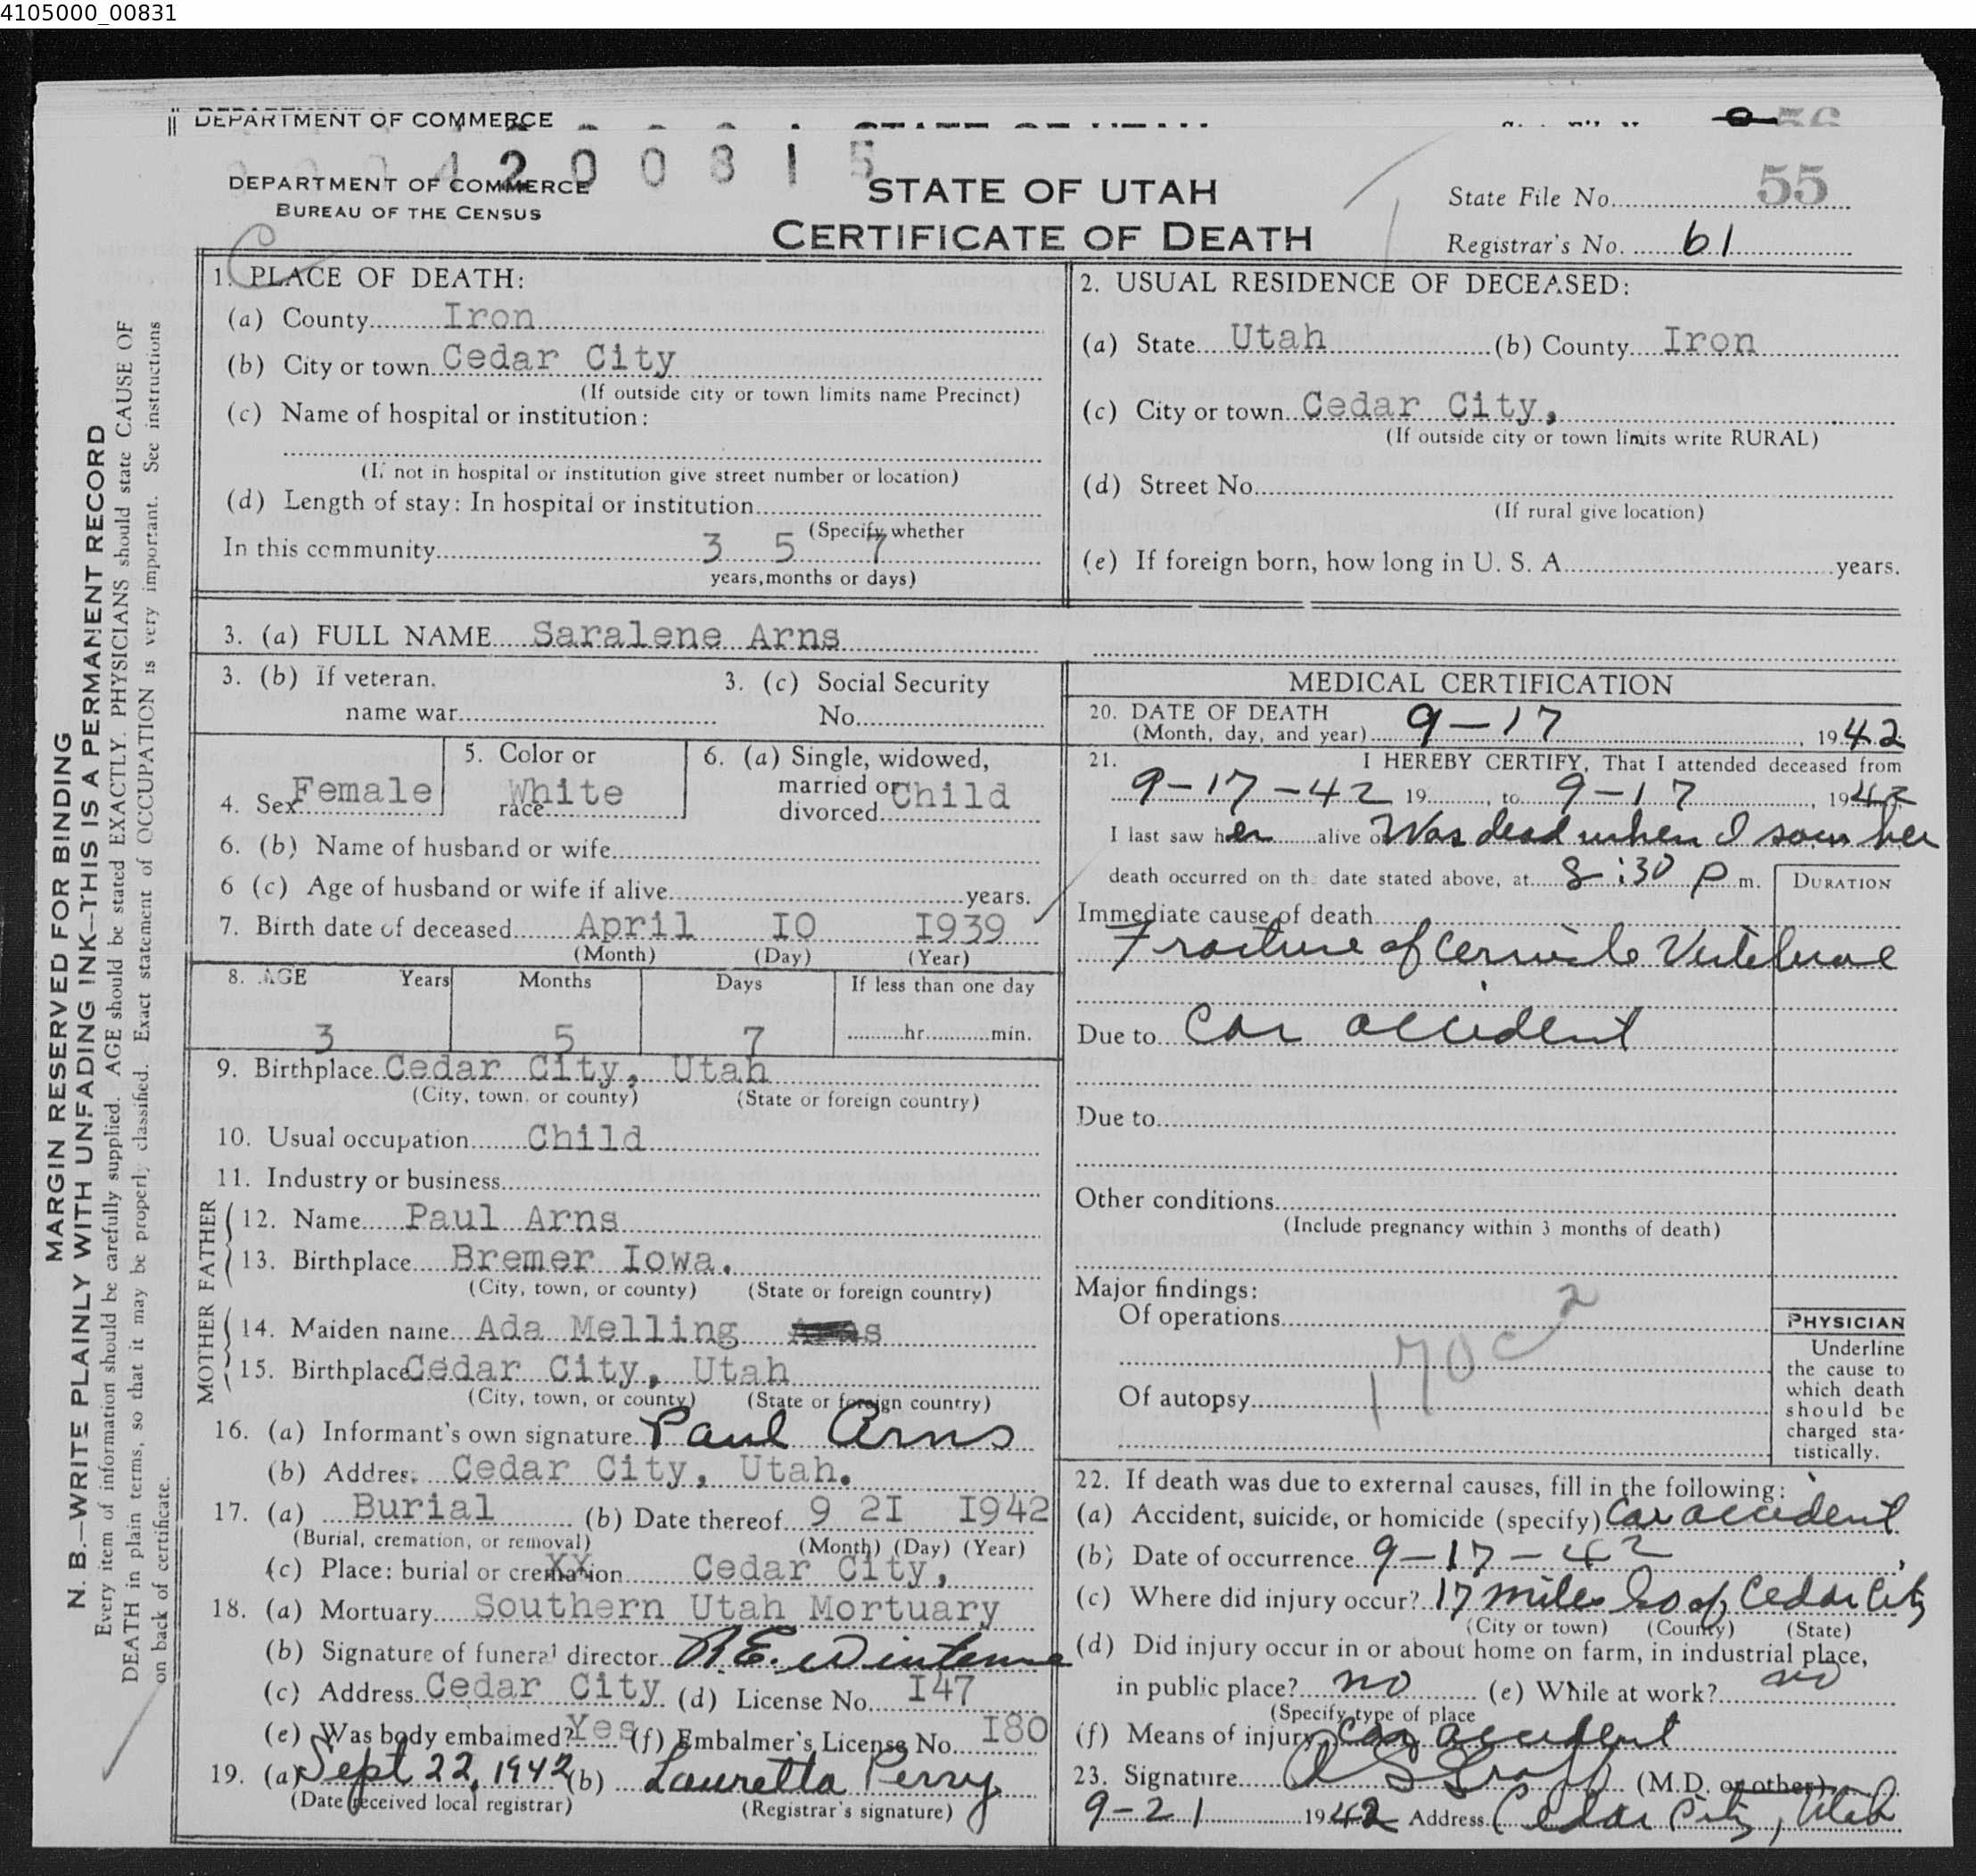 4105000_00831
DEPARTMENT OF COMMERCE
4200815
DEPARTMENT OF COMMERCE
BUREAU OF THE CENSUS
STATE OF UTAH
CERTIFICATE OF DEATH
State File No. 55
Registrar's No. 61
MARGIN RESERVED FOR BINDING
N. B.—WRITE PLAINLY WITH UNFADING INK—THIS IS A PERMANENT RECORD
Every item of information should be carefully supplied. AGE should be stated EXACTLY. PHYSICIANS should state CAUSE OF
DEATH in plain terms, so that it may be properly classified. Exact statement of OCCUPATION is very important. See instructions
on back of certificate.
1. PLACE OF DEATH:
(a) County Iron
(b) City or town Cedar City
(If outside city or town limits name Precinct)
(c) Name of hospital or institution:
(If not in hospital or institution give street number or location)
(d) Length of stay: In hospital or institution
(Specify whether
In this community 3 5 7
years, months or days)
2. USUAL RESIDENCE OF DECEASED:
(a) State Utah (b) County Iron
(c) City or town Cedar City,
(If outside city or town limits write RURAL)
(d) Street No.
(If rural give location)
(e) If foreign born, how long in U. S. A. years.
3. (a) FULL NAME Saralene Arns
3. (b) If veteran.
name war
3. (c) Social Security
No.
4. Sex Female
5. Color or
race White
6. (a) Single, widowed,
married or
divorced Child
6. (b) Name of husband or wife
6 (c) Age of husband or wife if alive years.
7. Birth date of deceased April I0 I939
(Month) (Day) (Year)
8. AGE Years Months Days If less than one day
3 5 7 hr. min.
9. Birthplace Cedar City, Utah
(City, town, or county) (State or foreign country)
10. Usual occupation Child
11. Industry or business
FATHER
12. Name Paul Arns
13. Birthplace Bremer Iowa.
(City, town, or county) (State or foreign country)
MOTHER
14. Maiden name Ada Melling
15. Birthplace Cedar City, Utah
(City, town, or county) (State or foreign country)
16. (a) Informant's own signature Paul Arns
(b) Address Cedar City, Utah.
17. (a) Burial (b) Date thereof 9 2I I942
(Burial, cremation, or removal) (Month) (Day) (Year)
(c) Place: burial or cremation Cedar City,
18. (a) Mortuary Southern Utah Mortuary
(b) Signature of funeral director R.E.
(c) Address Cedar City (d) License No. I47
(e) Was body embalmed? Yes (f) Embalmer's License No. I80
19. (a) Sept 22, 1942 (b) Lauretta Perry
(Date received local registrar) (Registrar's signature)
MEDICAL CERTIFICATION
20. DATE OF DEATH
(Month, day, and year) 9-17, 1942
21. I HEREBY CERTIFY, That I attended deceased from
9-17-42 19 , to 9-17, 1942
I last saw her alive on Was dead when I saw her
death occurred on the date stated above, at 8:30 P m.
DURATION
Immediate cause of death
Fracture of Cervicle Vertebrae
Due to Car accident
Due to
Other conditions
(Include pregnancy within 3 months of death)
Major findings:
Of operations
170c 2
Of autopsy
PHYSICIAN
Underline
the cause to
which death
should be
charged sta-
tistically.
22. If death was due to external causes, fill in the following:
(a) Accident, suicide, or homicide (specify) Car accident
(b) Date of occurrence 9-17-42
(c) Where did injury occur? 17 miles So of Cedar City
(City or town) (County) (State)
(d) Did injury occur in or about home on farm, in industrial place,
in public place? no (e) While at work? no
(Specify type of place
(f) Means of injury Car accident
23. Signature (M.D. or other)
9-21 1942 Address Cedar City, Utah